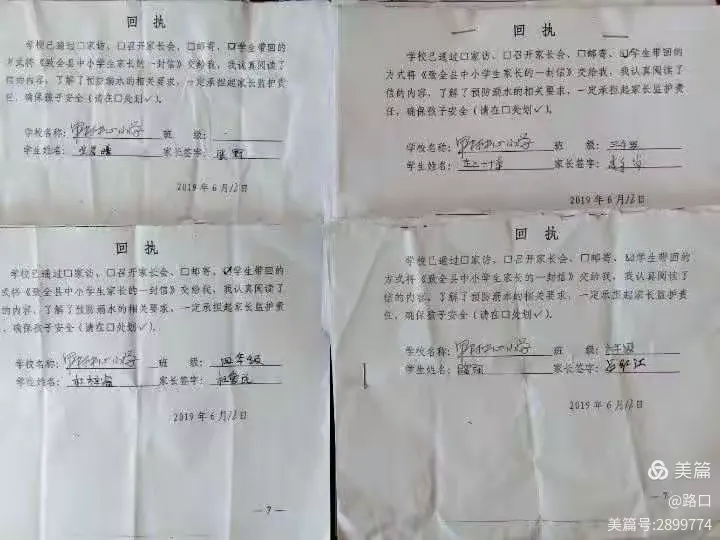 回执
学校已通过口家访、口召开家长会、口邮寄、口学生带回的
方式将《致全县中小学生家长的一封信》交给我，我认真阅读了
信的内容，了解了预防溺水的相关要求，一定承担起家长监护责
任，确保孩子安全（请在口处划✓）。
学校名称： 小学 班 级：
学生姓名： 家长签字：
2019年6月12日
回执
学校已通过口家访、口召开家长会、口邮寄、☑学生带回的
方式将《致全县中小学生家长的一封信》交给我，我认真阅读了
信的内容，了解了预防溺水的相关要求，一定承担起家长监护责
任，确保孩子安全（请在口处划✓）。
学校名称： 小学 班 级：
学生姓名： 家长签字：
2019年6月12日
回执
学校已通过口家访、口召开家长会、口邮寄、☑学生带回的
方式将《致全县中小学生家长的一封信》交给我，我认真阅读了
信的内容，了解了预防溺水的相关要求，一定承担起家长监护责
、确保孩子安全（请在口处划✓）。
学校名称： 小学 班 级：四年级
学生姓名： 家长签字：
2019年6月12日
—7
回执
学校已通过口家访、口召开家长会、口邮寄、☑学生带回的
方式将《致全县中小学生家长的一封信》交给我，我认真阅读了
信的内容，了解了预防溺水的相关要求，一定承担起家长监护责
任，确保孩子安全（请在口处划✓）。
学校名称： 小学 班 级：
学生姓名： 家长签字：
2019年6月12日
—7
美篇
@路口
美篇号:2899774